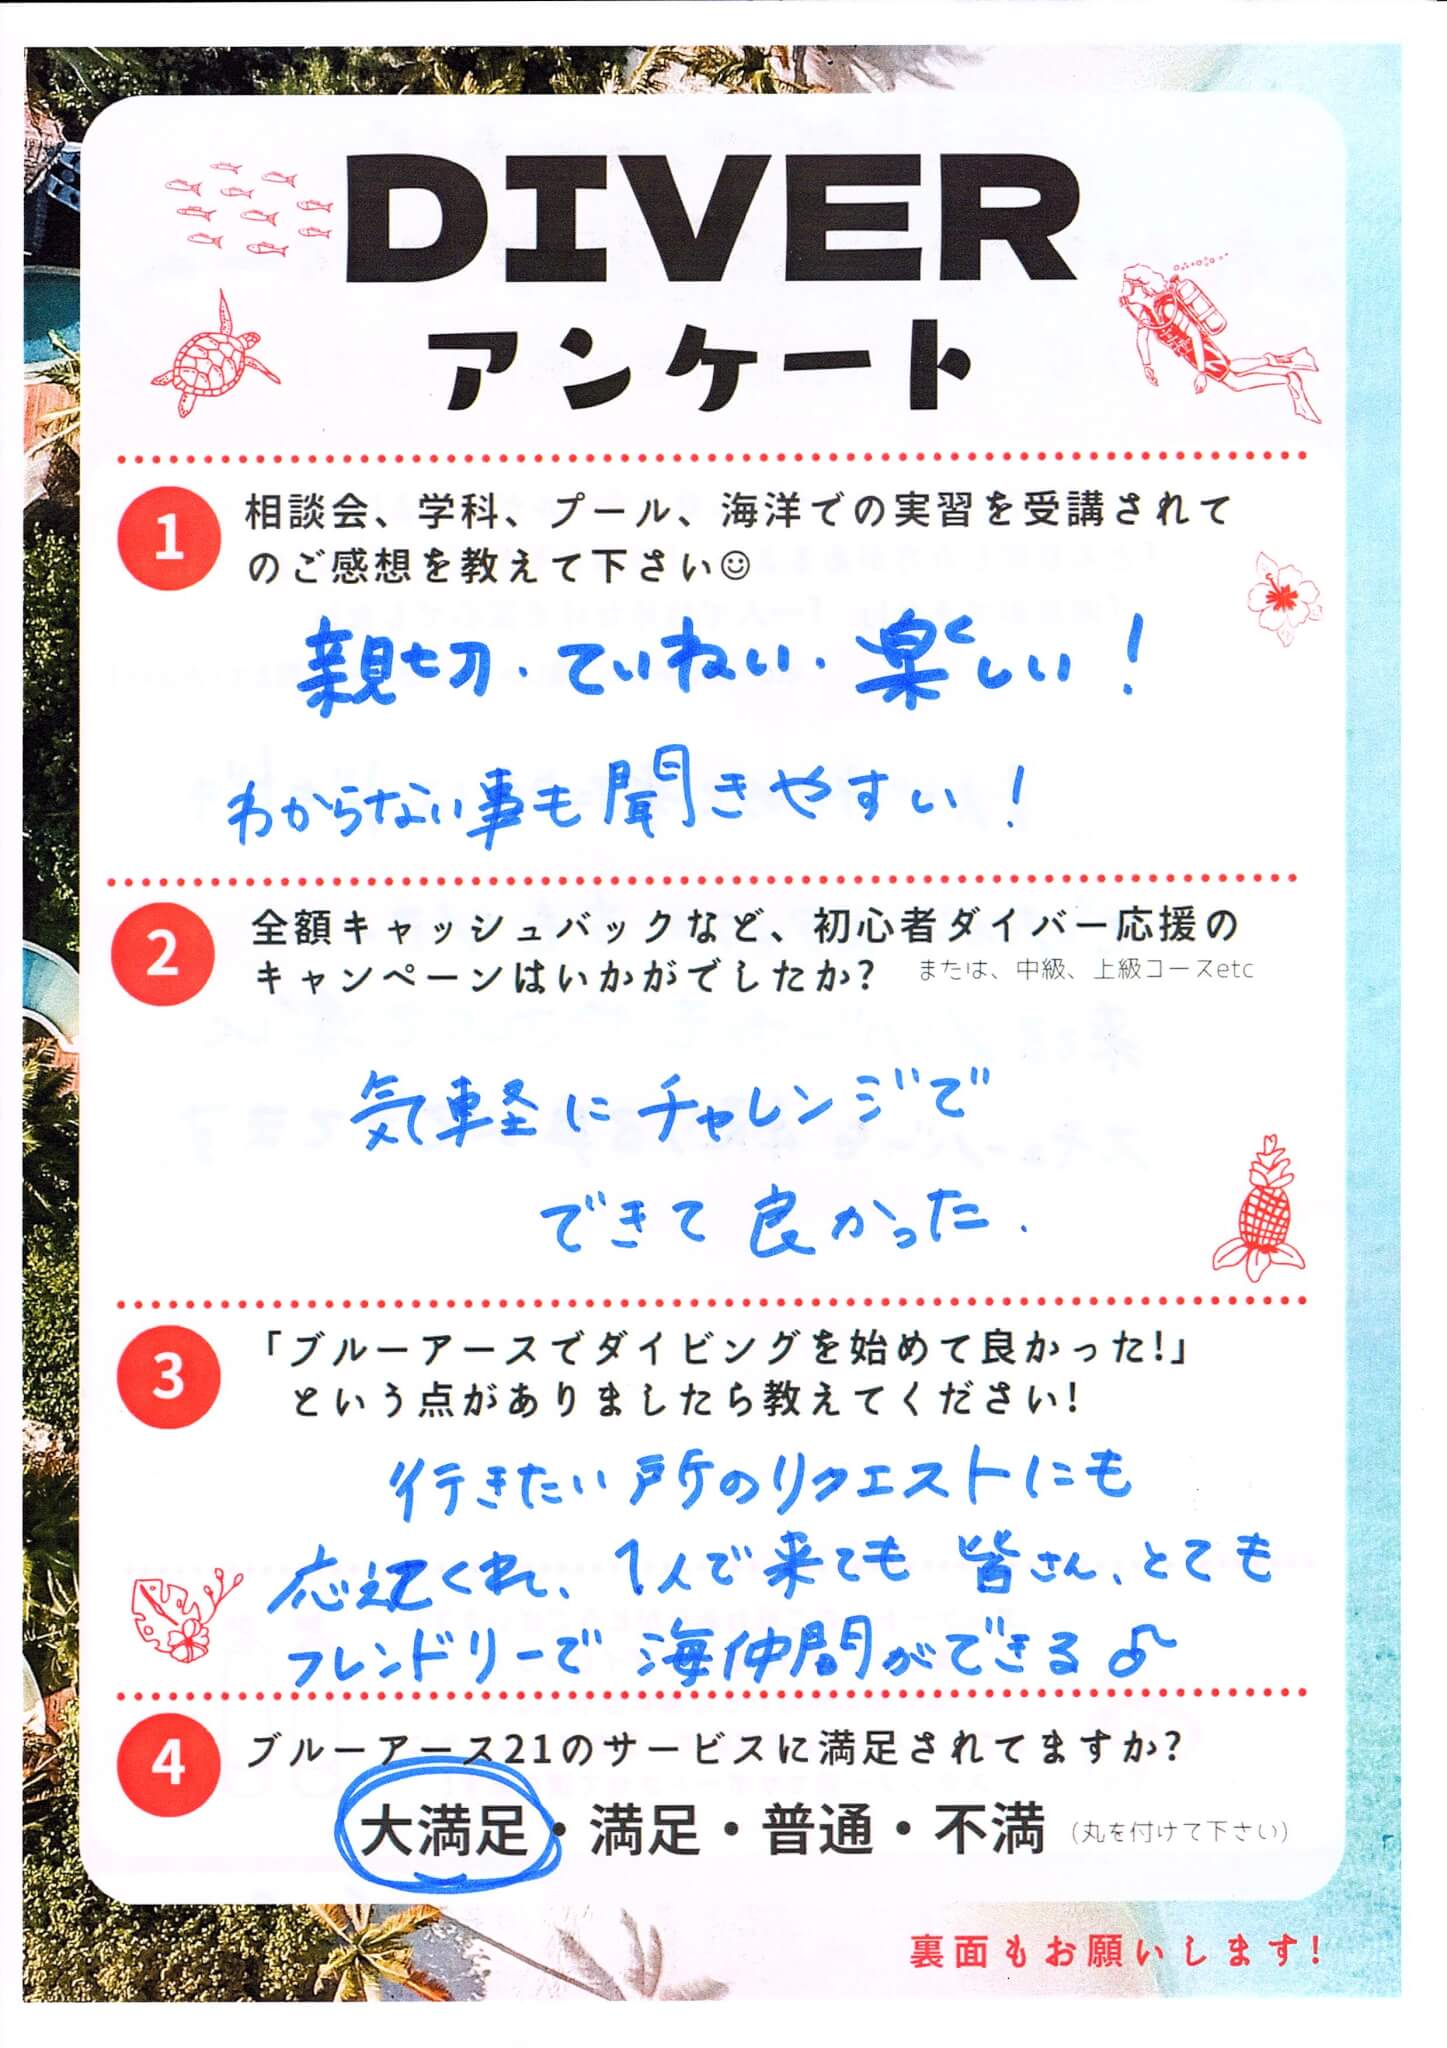 DIVER
アンケート
1
相談会、学科、プール、海洋での実習を受講されて
のご感想を教えて下さい☺
親切・ていねい・楽しい！
わからない事も聞きやすい！
2
全額キャッシュバックなど、初心者ダイバー応援の
キャンペーンはいかがでしたか?
または、中級、上級コースetc
気軽にチャレンジで
できて良かった.
3
「ブルーアースでダイビングを始めて良かった!」
という点がありましたら教えてください!
行きたい所のリクエストにも
応えてくれ、1人で来ても皆さん、とても
フレンドリーで海仲間ができる♪
4
ブルーアース21のサービスに満足されてますか?
大満足・満足・普通・不満 (丸を付けて下さい)
裏面もお願いします!